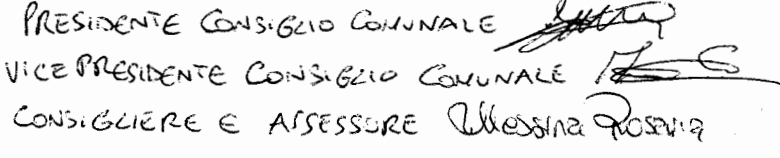 PRESIDENTE CONSIGLIO COMUNALE
VICE PRESIDENTE CONSIGLIO COMUNALE
CONSIGLIERE E ASSESSORE Messina Rosaria